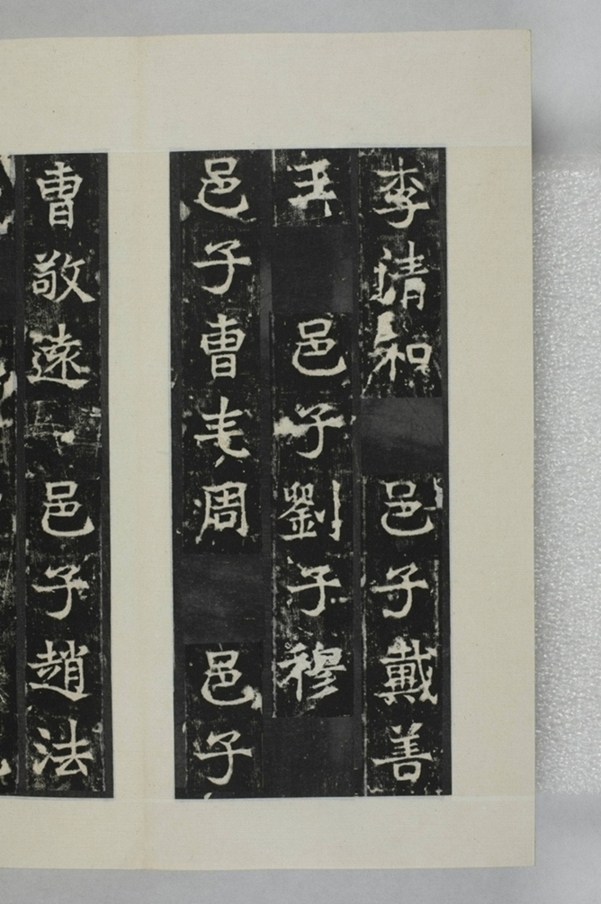 李清和 邑子戴善
王 邑子劉子穆
邑子曹毛周 邑子
曹敬遠 邑子趙法